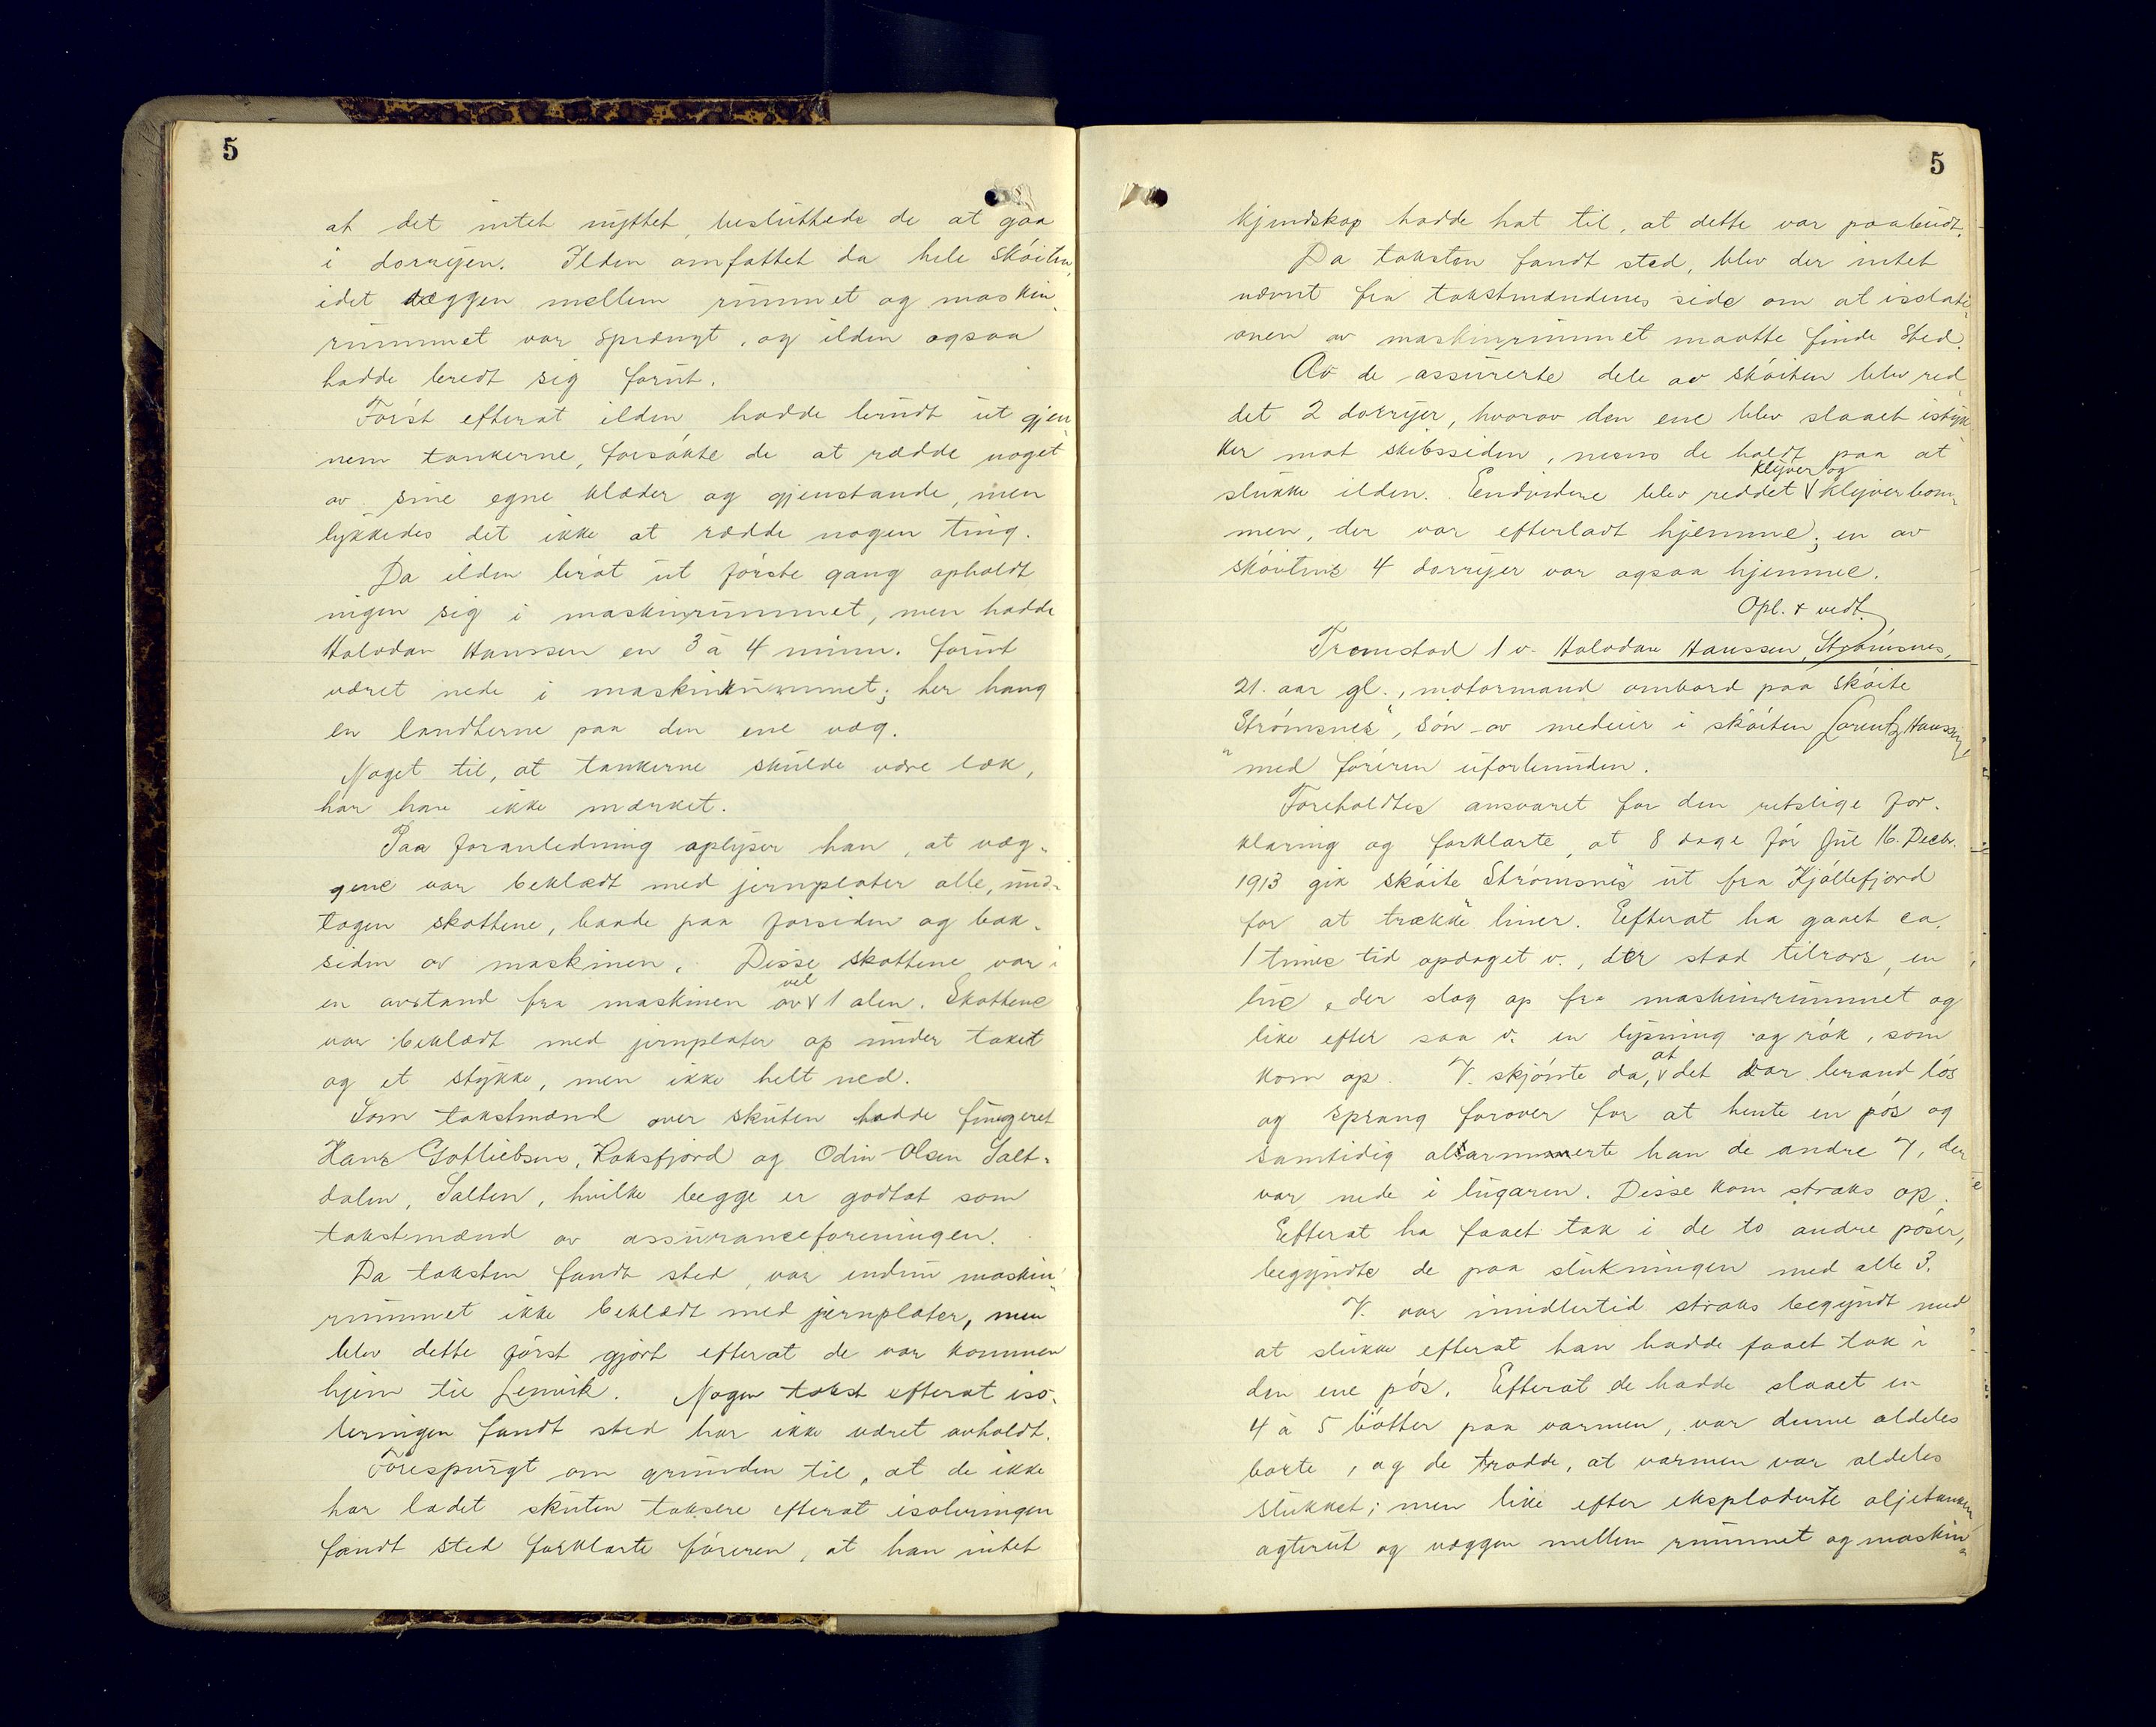 5
at det intet nyttet, besluttede de at gaa
i dorryen. Ilden omfattet da hele skøiten,
idet væggen mellem rummet og maskin-
rummet var sprængt, og ilden ogsaa
hadde bredt sig forut.
Først efterat ilden hadde brudt ut gjen-
nem tankerne, forsøkte de at rædde noget
av sine egne klæder og gjenstande, men
lykkedes det ikke at rædde nogen ting.
Da ilden brøt ut første gang opholdt
ingen sig i maskinrummet, men hadde
Halvdan Hanssen en 3 à 4 minu. forut
været nede i maskinrummet; her hang
en landterne paa den ene væg.
Noget til, at tankerne skulde være læk,
har han ikke mærket.
Paa foranledning oplyser han, at væg-
gene var beklædt med jernplater alle, und-
tagen skottene, baade paa forsiden og bak-
siden av maskinen. Disse skottene var i
en avstand fra maskinen av vel 1 alen. Skottene
var beklædt med jernplater op under taket
og et stykke, men ikke helt ned.
Som takstmænd over skuten hadde fungeret
Hans Gotliebsen, Koksfjord og Odin Olsen Salt-
dalen, Salten, hvilke begge er godtat som
takstmænd av assuranceforeningen.
Da taksten fandt sted, var endnu maskin-
rummet ikke beklædt med jernplater, men
blev dette først gjort efterat de var kommen
hjem til Lenvik. Nogen takst efterat iso-
leringen fandt sted har ikke været avholdt.
Forespurgt om grunden til, at de ikke
har ladet skuten taksere efterat isoleringen
fandt sted forklarte føreren, at han intet
5
kjendskap hadde hat til, at dette var paabudt.
Da taksten fandt sted, blev der intet
nævnt fra takstmændenes side om at isolati-
onen av maskinrummet maatte finde sted.
Av de assurerte dele av skøiten blev red
det 2 dorryer, hvorav den ene blev slaaet istyk-
ker mot skibssiden, mens de holdt paa at
slukke ilden. Endvidere blev reddet klyver og klyverbom-
men, der var efterladt hjemme; en av
skøitens 4 dorryer var ogsaa hjemme.
Opl. & vedt.
Fremstod 1 v. Halvdan Hanssen, Strømsnes,
21. aar gl., motormand ombord paa skøite
"Strømsnes", søn av medeier i skøiten Lorentz Hanssen,
med føreren uforbunden.
Foreholdtes ansvaret for den retslige for-
klaring og forklarte, at 8 dage før Jul 16. Decbr.
1913 gik skøite "Strømsnes" ut fra Kjøllefjord
for at trække liner. Efterat ha gaaet ca.
1 times tid opdaget v., der stod tilrors, en
lue, der slog op fra maskinrummet og
like efter saa v. en lysning og røk, som
kom op. V. skjønte da, at det var brand løs
og sprang forover for at hente en pøs og
samtidig alarmerte han de andre 7, der
var nede i lugaren. Disse kom straks op.
Efterat ha faaet tak i de to andre pøser,
begyndte de paa slukningen med alle 3.
V. var imidlertid straks begyndt med
at slukke efterat han hadde faaet tak i
den ene pøs. Efterat de hadde slaaet en
4 à 5 bøtter paa varmen, var denne aldeles
borte, og de trodde, at varmen var aldeles
slukket; men like efter eksploderte oljetanken
agterut og væggen mellem rummet og maskin-